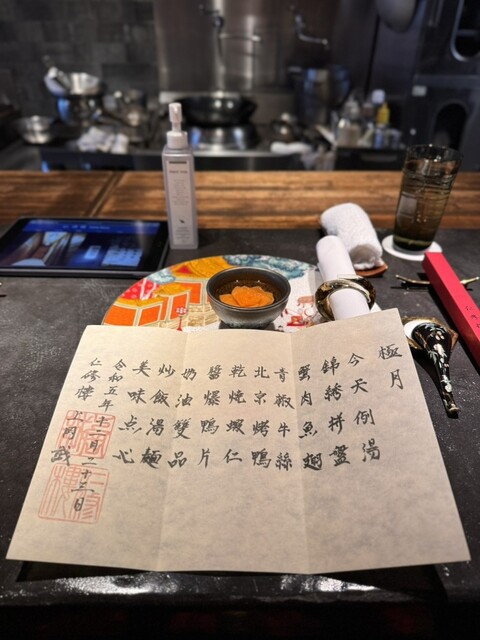 極月
今天例湯
錦綉拼盤
蟹肉魚翅
青椒牛絲
北京烤鴨
乾燒蝦仁
醬爆鴨片
奶油雙品
炒飯湯麺
美味点心
令和五年十二月二十三日
仁修樓 上岡誠